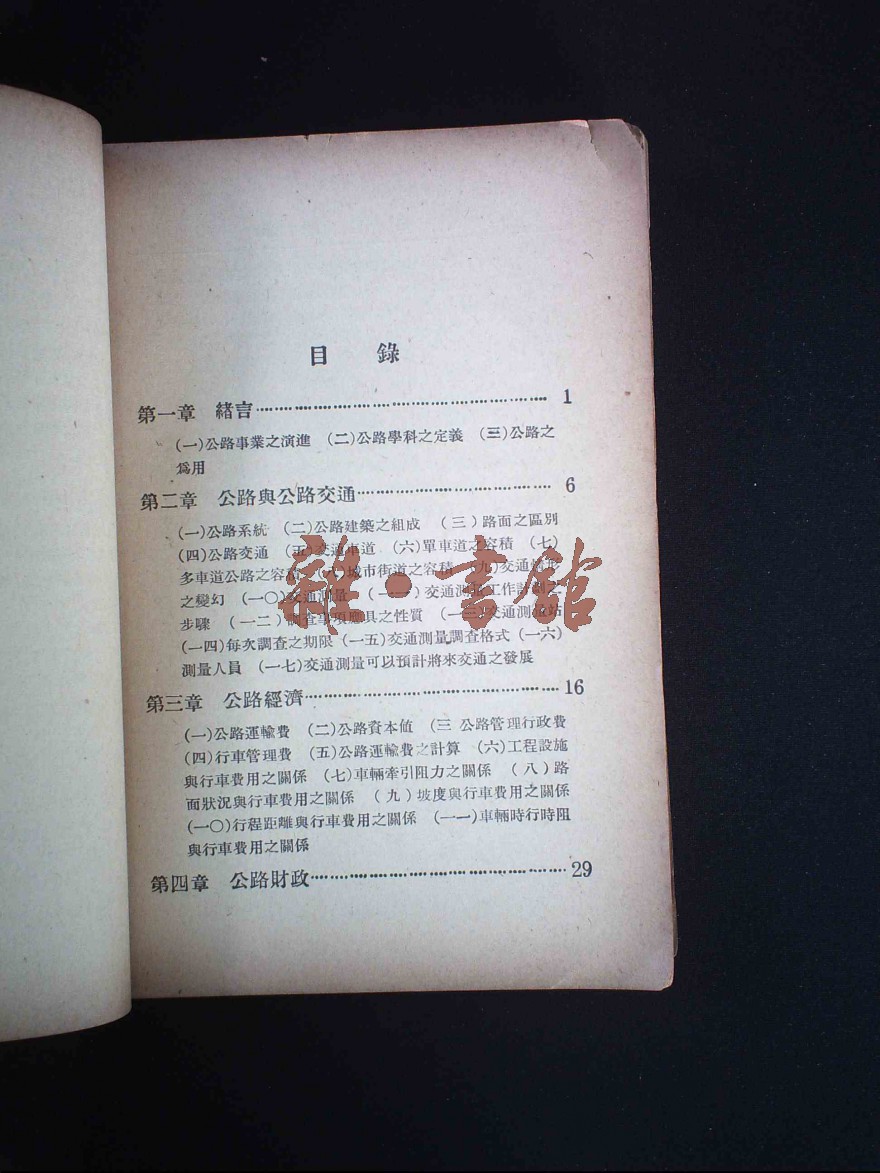 目 錄
第一章 緒言 1
(一)公路事業之演進 (二)公路學科之定義 (三)公路之
爲用
第二章 公路與公路交通 6
(一)公路系統 (二)公路建築之組成 (三)路面之區別
(四)公路交通 (五)交通車道 (六)單車道之容積 (七)
多車道公路之容積 (八)城市街道之容積 (九)交通情形
之變幻 (一〇)交通測量 (一一)交通測量工作計劃之
步驟 (一二)調查事項應具之性質 (一三)交通測量站
(一四)每次調查之期限 (一五)交通測量調查格式 (一六)
測量人員 (一七)交通測量可以預計將來交通之發展
第三章 公路經濟 16
(一)公路運輸費 (二)公路資本值 (三 公路管理行政費
(四)行車管理費 (五)公路運輸費之計算 (六)工程設施
與行車費用之關係 (七)車輛牽引阻力之關係 (八)路
面狀況與行車費用之關係 (九)坡度與行車費用之關係
(一〇)行程距離與行車費用之關係 (一一)車輛時行時阻
與行車費用之關係
第四章 公路財政 29
雜·書館